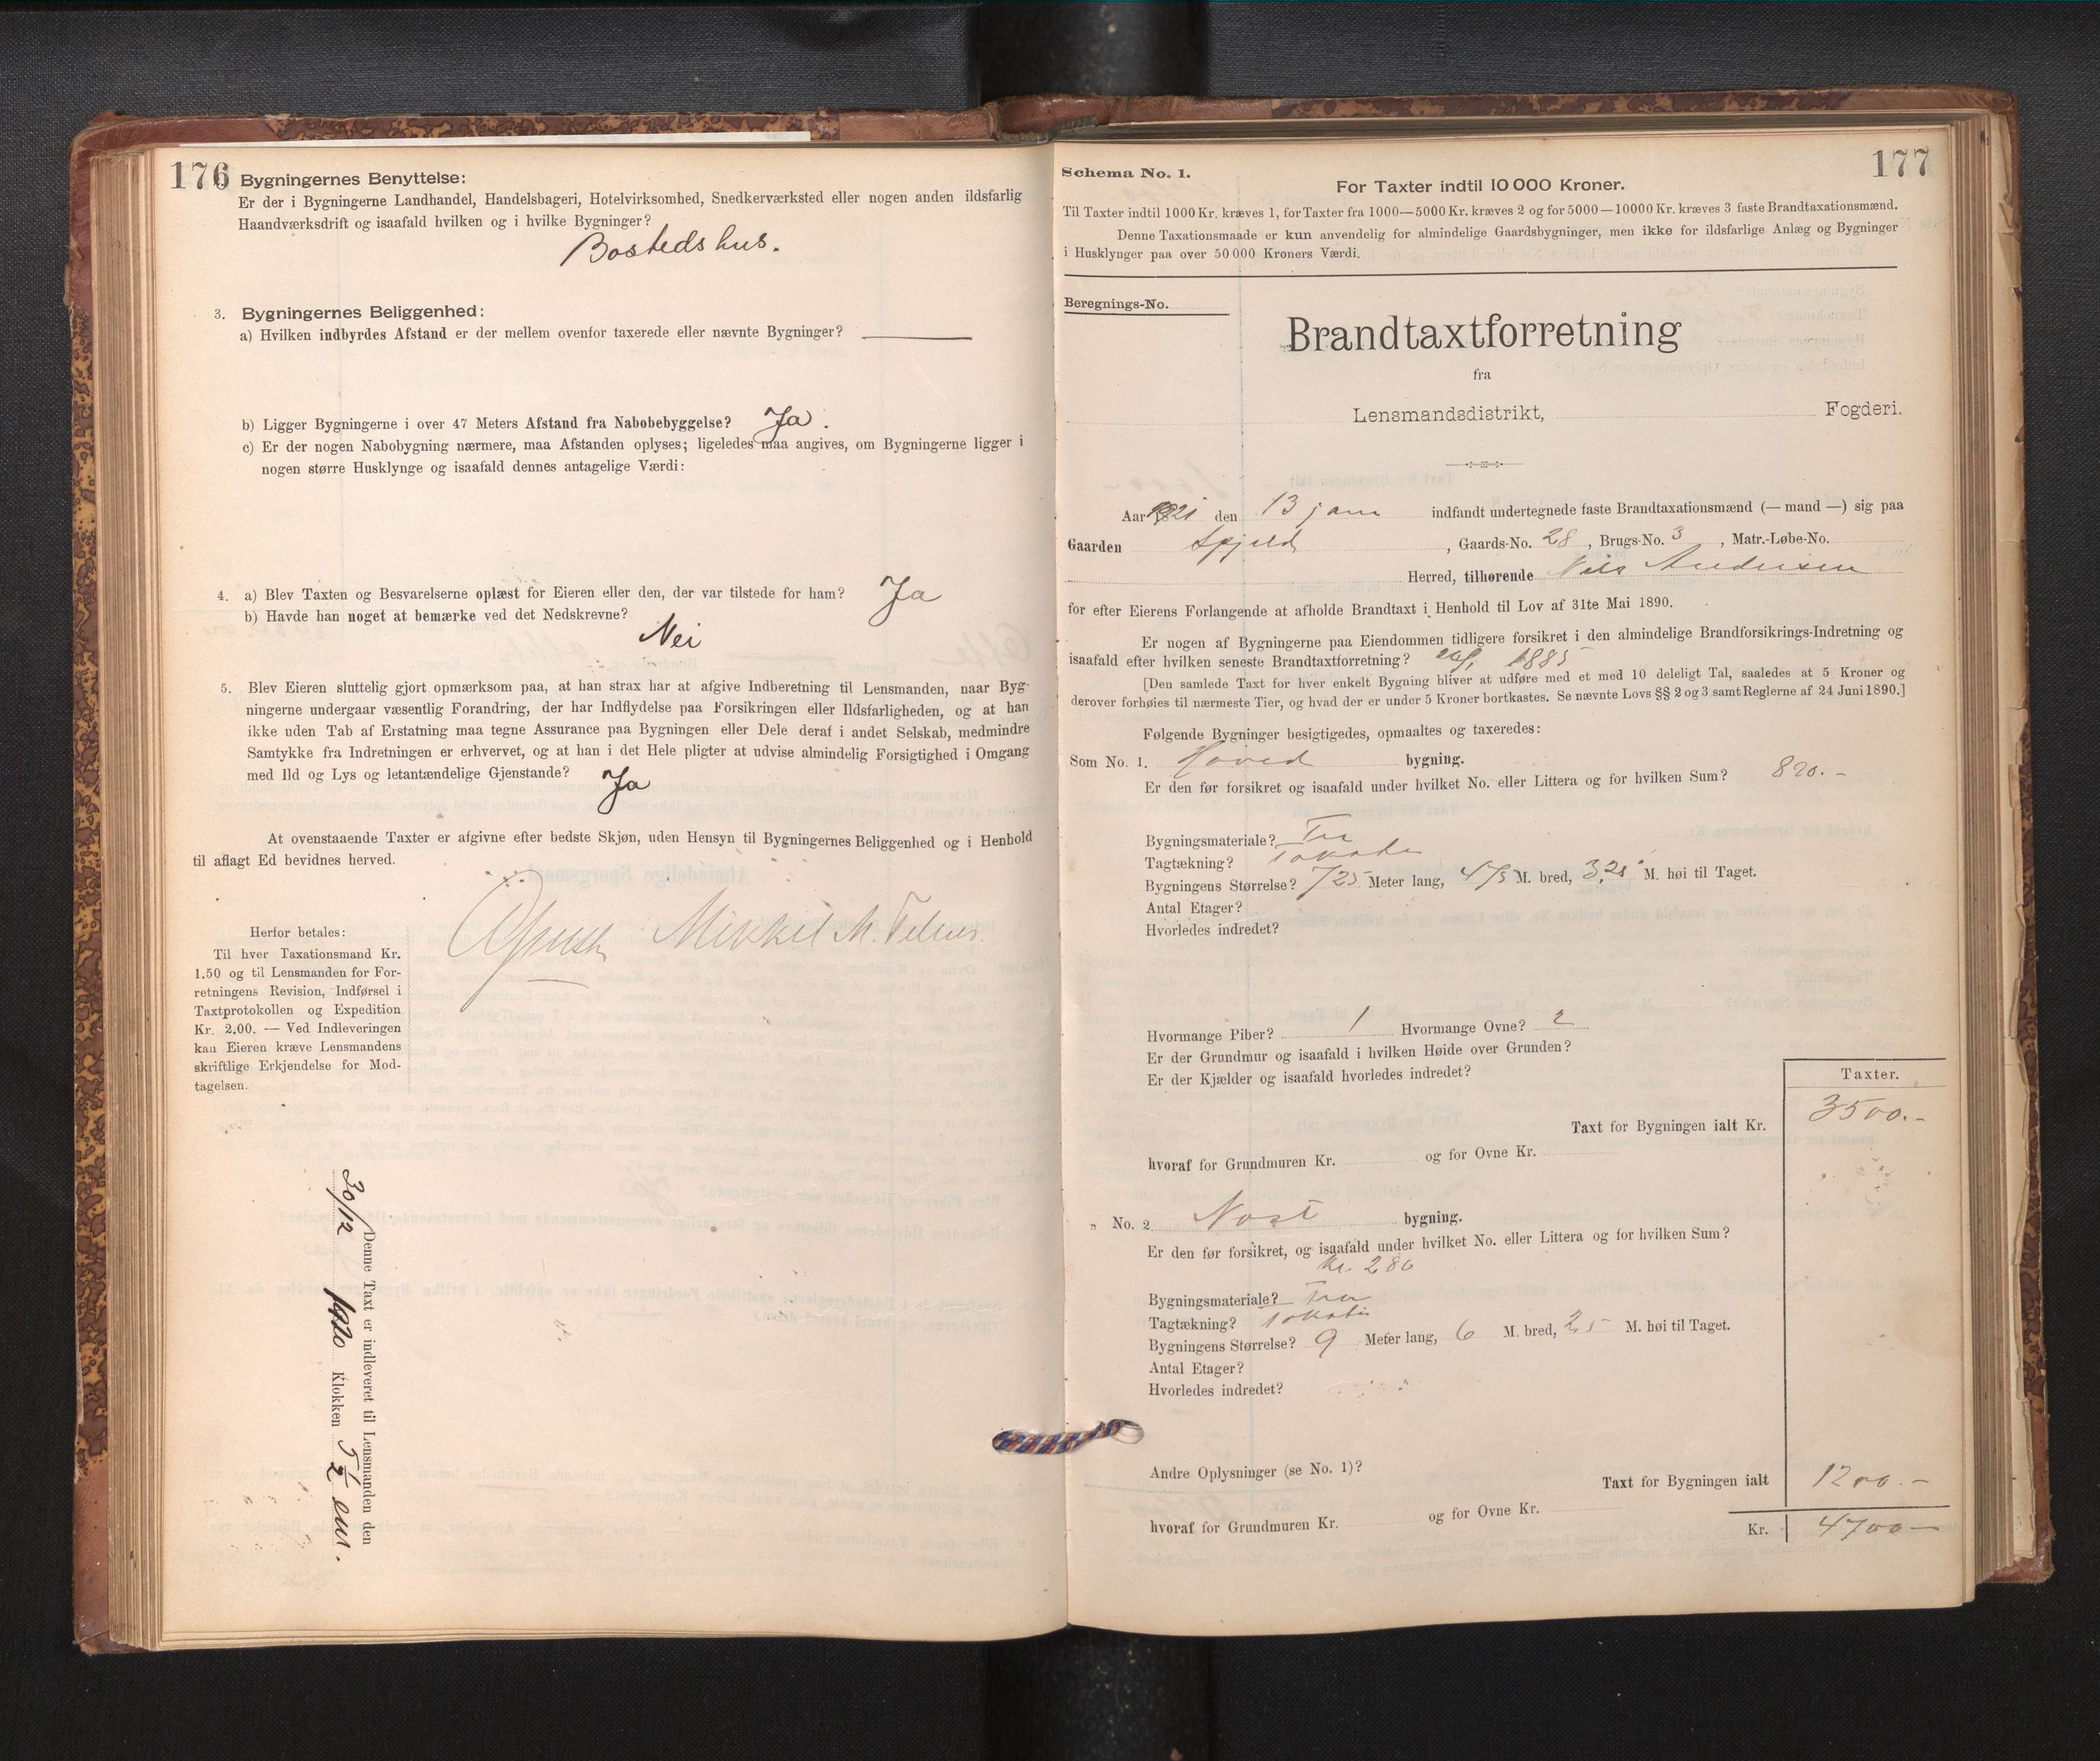 176
Bygningernes Benyttelse:
Er der i Bygningerne Landhandel, Handelsbageri, Hotelvirksomhed, Snedkerværksted eller nogen anden ildsfarlig
Haandværksdrift og isaafald hvilken og i hvilke Bygninger?
Bostedshus.
3. Bygningernes Beliggenhed:
a) Hvilken indbyrdes Afstand er der mellem ovenfor taxerede eller nævnte Bygninger?
b) Ligger Bygningerne i over 47 Meters Afstand fra Nabobebyggelse? Ja.
c) Er der nogen Nabobygning nærmere, maa Afstanden oplyses; ligeledes maa angives, om Bygningerne ligger i
nogen større Husklynge og isaafald dennes antagelige Værdi:
4. a) Blev Taxten og Besvarelserne oplæst for Eieren eller den, der var tilstede for ham? Ja
b) Havde han noget at bemærke ved det Nedskrevne?
Nei
5. Blev Eieren sluttelig gjort opmærksom paa, at han strax har at afgive Indberetning til Lensmanden, naar Byg-
ningerne undergaar væsentlig Forandring, der har Indflydelse paa Forsikringen eller Ildsfarligheden, og at han
ikke uden Tab af Erstatning maa tegne Assurance paa Bygningen eller Dele deraf i andet Selskab, medmindre
Samtykke fra Indretningen er erhvervet, og at han i det Hele pligter at udvise almindelig Forsigtighed i Omgang
med Ild og Lys og letantændelige Gjenstande? Ja
At ovenstaaende Taxter er afgivne efter bedste Skjøn, uden Hensyn til Bygningernes Beliggenhed og i Henhold
til aflagt Ed bevidnes herved.
Mikkel M.
Herfor betales:
Til hver Taxationsmand Kr.
1.50 og til Lensmanden for For-
retningens Revision, Indførsel i
Taxtprotokollen og Expedition
Kr. 2,00. — Ved Indleveringen
kan Eieren kræve Lensmandens
skriftlige Erkjendelse for Mod-
tagelsen.
Denne Taxt er indleveret til Lensmanden den
30/12 1920 Klokken 5 ½ em.
177
Schema No. 1.
For Taxter indtil 10 000 Kroner.
Til Taxter indtil 1000 Kr. kræves 1, for Taxter fra 1000—5000 Kr. kræves 2 og for 5000—10000 Kr. kræves 3 faste Brandtaxationsmænd.
Denne Taxationsmaade er kun anvendelig for almindelige Gaardsbygninger, men ikke for ildsfarlige Anlæg og Bygninger
i Husklynger paa over 50 000 Kroners Værdi.
Beregnings-No.
Brandtaxtforretning
fra
Lensmandsdistrikt, Fogderi.
Aar 1921 den 13 jann indfandt undertegnede faste Brandtaxationsmænd (— mand —) sig paa
Gaarden Spjeld, Gaards-No. 28, Brugs-No. 3, Matr.-Løbe-No.
Herred, tilhørende Nils Andersen
for efter Eierens Forlangende at afholde Brandtaxt i Henhold til Lov af 31te Mai 1890.
Er nogen af Bygningerne paa Eiendommen tidligere forsikret i den almindelige Brandforsikrings-Indretning og
isaafald efter hvilken seneste Brandtaxtforretning? 1885
[Den samlede Taxt for hver enkelt Bygning bliver at udføre med et med 10 deleligt Tal, saaledes at 5 Kroner og
derover forhøies til nærmeste Tier, og hvad der er under 5 Kroner bortkastes. Se nævnte Lovs §§ 2 og 3 samt Reglerne af 24 Juni 1890.]
Følgende Bygninger besigtigedes, opmaaltes og taxeredes:
Som No. 1. Hoved bygning.
Er den før forsikret og isaafald under hvilket No. eller Littera og for hvilken Sum? 820.-
Bygningsmateriale? Træ
Tagtækning?
Bygningens Størrelse? 725 Meter lang, M. bred, M. høi til Taget.
Antal Etager?
Hvorledes indredet?
Hvormange Piber? 1 Hvormange Ovne? 2
Er der Grundmur og isaafald i hvilken Høide over Grunden?
Er der Kjælder og isaafald hvorledes indredet?
Taxter.
Taxt for Bygningen ialt Kr. 3500.-
hvoraf for Grundmuren Kr. og for Ovne Kr.
„ No. 2 Nost bygning.
Er den før forsikret, og isaafald under hvilket No. eller Littera og for hvilken Sum?
Kr. 280
Bygningsmateriale? Træ
Tagtækning?
Bygningens Størrelse? 9 Meter lang, 6 M. bred, 2,5 M. høi til Taget.
Antal Etager?
Hvorledes indredet?
Andre Oplysninger (se No. 1)?
Taxt for Bygningen ialt 1200.-
hvoraf for Grundmuren Kr. og for Ovne Kr.
Kr. 4700-